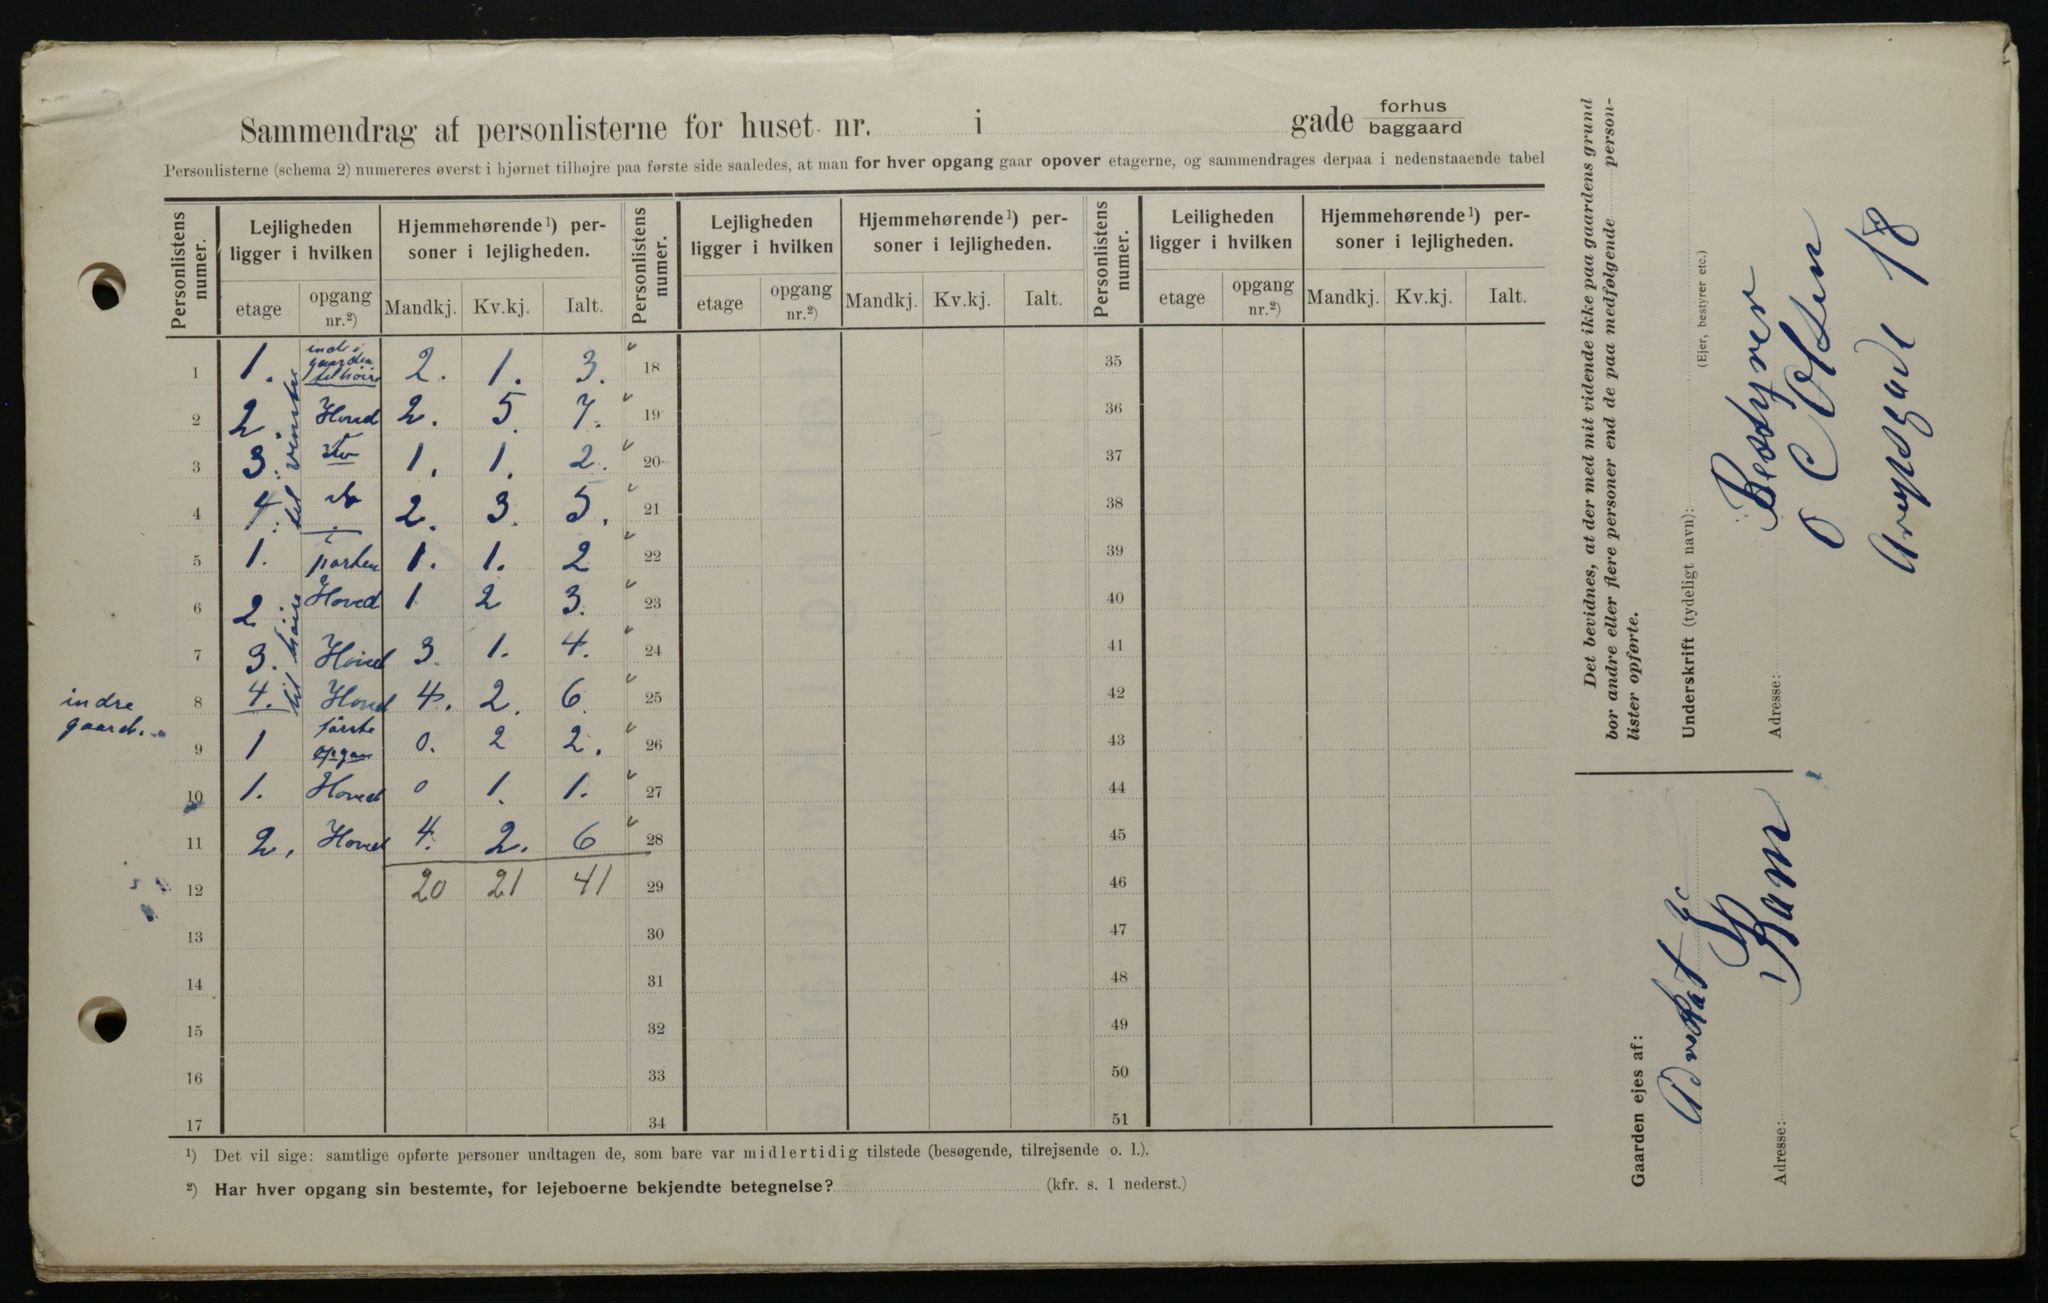 Sammendrag af personlisterne for huset nr. i gade forhus baggaard
Personlisterne (schema 2) numereres øverst i hjørnet tilhøjre paa første side saaledes, at man for hver opgang gaar opover etagerne, og sammendrages derpaa i nedenstaaende tabel
Personlistens numer. Lejligheden ligger i hvilken Hjemmehørende¹) personer i lejligheden. Personlistens numer. Lejligheden ligger i hvilken Hjemmehørende¹) personer i lejligheden. Personlistens numer. Leiligheden ligger i hvilken Hjemmehørende¹) personer i lejligheden.
etage opgang nr.²) Mandkj. Kv.kj. Ialt. etage opgang nr.²) Mandkj. Kv.kj. Ialt. etage opgang nr.²) Mandkj. Kv.kj. Ialt.
1 1. ind i gaarden til høire 2. 1. 3. 18 35
2 2. Hoved 2. 5. 7. 19 36
3 3. 1. 1. 2. 20 37
4 4. 2. 3. 5. 21 38
til venstre
5 1. i porten 1. 1. 2 22 39
6 2 Hoved 1 2 3. 23 40
7 3. Hoved 3. 1. 4. 24 41
8 4. Hoved 4. 2. 6. 25 42
til høire
indre gaard.
9 1 første opgan 0. 2 2. 26 43
10 1. Hoved 0 1. 1. 27 44
11 2. Hoved 4. 2. 6 28 45
12 20 21 41 29 46
13 30 47
14 31 48
15 32 49
16 33 50
17 34 51
¹) Det vil sige: samtlige opførte personer undtagen de, som bare var midlertidig tilstede (besøgende, tilrejsende o. l.).
²) Har hver opgang sin bestemte, for lejeboerne bekjendte betegnelse? (kfr. s. 1 nederst.)
Det bevidnes, at der med mit vidende ikke paa gaardens grund
bor andre eller flere personer end de paa medfølgende person-
lister opførte.
Underskrift (tydeligt navn):
(Ejer, bestyrer etc.)
Bestyrer
O C Olsen
Adresse:
Arupsgade 18
Gaarden ejes af:
Advokat
Ram
Adresse: